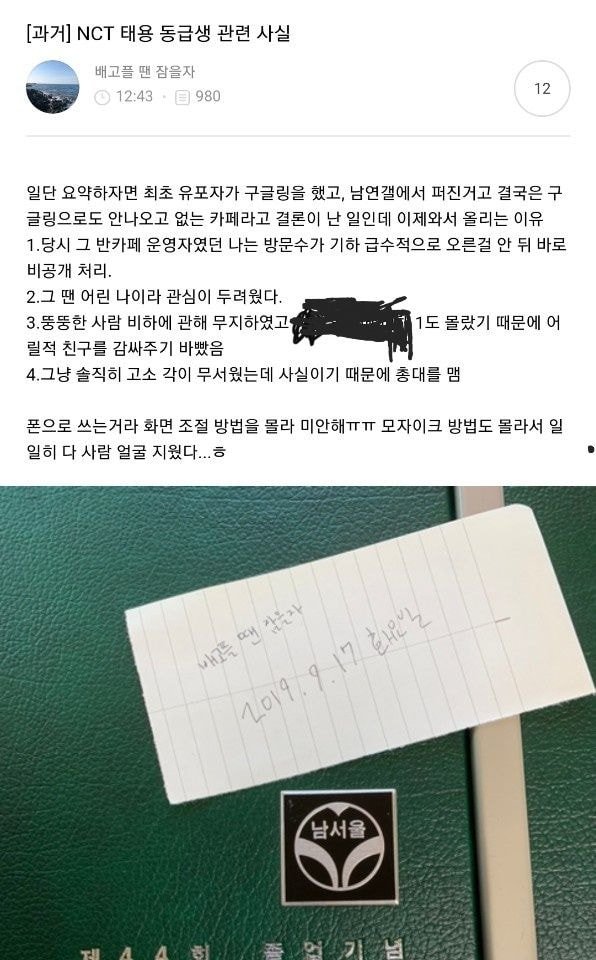 [과거] NCT 태용 동급생 관련 사실
배고플 땐 잠을자
12:43 · 980
12
일단 요약하자면 최초 유포자가 구글링을 했고, 남연갤에서 퍼진거고 결국은 구
글링으로도 안나오고 없는 카페라고 결론이 난 일인데 이제와서 올리는 이유
1.당시 그 반카페 운영자였던 나는 방문수가 기하 급수적으로 오른걸 안 뒤 바로
비공개 처리.
2.그 땐 어린 나이라 관심이 두려웠다.
3.뚱뚱한 사람 비하에 관해 무지하였고 1도 몰랐기 때문에 어
릴적 친구를 감싸주기 바빴음
4.그냥 솔직히 고소 각이 무서웠는데 사실이기 때문에 총대를 맴
폰으로 쓰는거라 화면 조절 방법을 몰라 미안해ㅠㅠ 모자이크 방법도 몰라서 일
일히 다 사람 얼굴 지웠다...ㅎ
배고플 땐 잠을자
2019. 9. 17 화요일
남서울
제44회 졸업기념